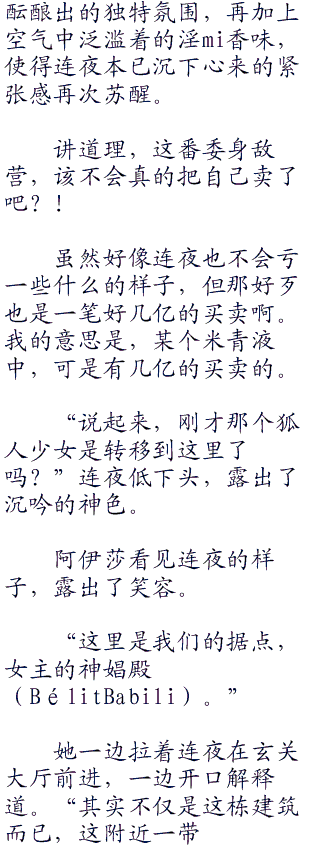 酝酿出的独特氛围，再加上
空气中泛滥着的淫mi香味，
使得连夜本已沉下心来的紧
张感再次苏醒。
讲道理，这番委身敌
营，该不会真的把自己卖了
吧？！
虽然好像连夜也不会亏
一些什么的样子，但那好歹
也是一笔好几亿的买卖啊。
我的意思是，某个米青液
中，可是有几亿的买卖的。
“说起来，刚才那个狐
人少女是转移到这里了
吗？”连夜低下头，露出了
沉吟的神色。
阿伊莎看见连夜的样
子，露出了笑容。
“这里是我们的据点，
女主的神娼殿
（BélitBabili）。”
她一边拉着连夜在玄关
大厅前进，一边开口解释
道。“其实不仅是这栋建筑
而已，这附近一带